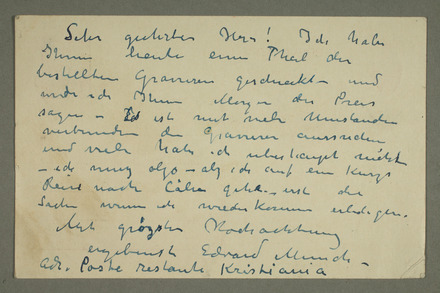 Sehr geehrter Herr! Ich habe
Ihnen heute einen Theil der
bestellten Gravuren geschickt – und
werde ich Ihnen Morgen den Preis
sagen – Es ist mit viele Umstanden
verbunden die Gravuren aussuchen
und viele habe ich uberhaupt nicht
– ich muss also – als ich auf eine kurze
Reise nach Cöln gehe – erst die
Sachen wenn ich wieder komme erledigen.
Mit grözster Hochachtung
ergebenst Edvard Munch –
adr. Poste restante, Kristiania